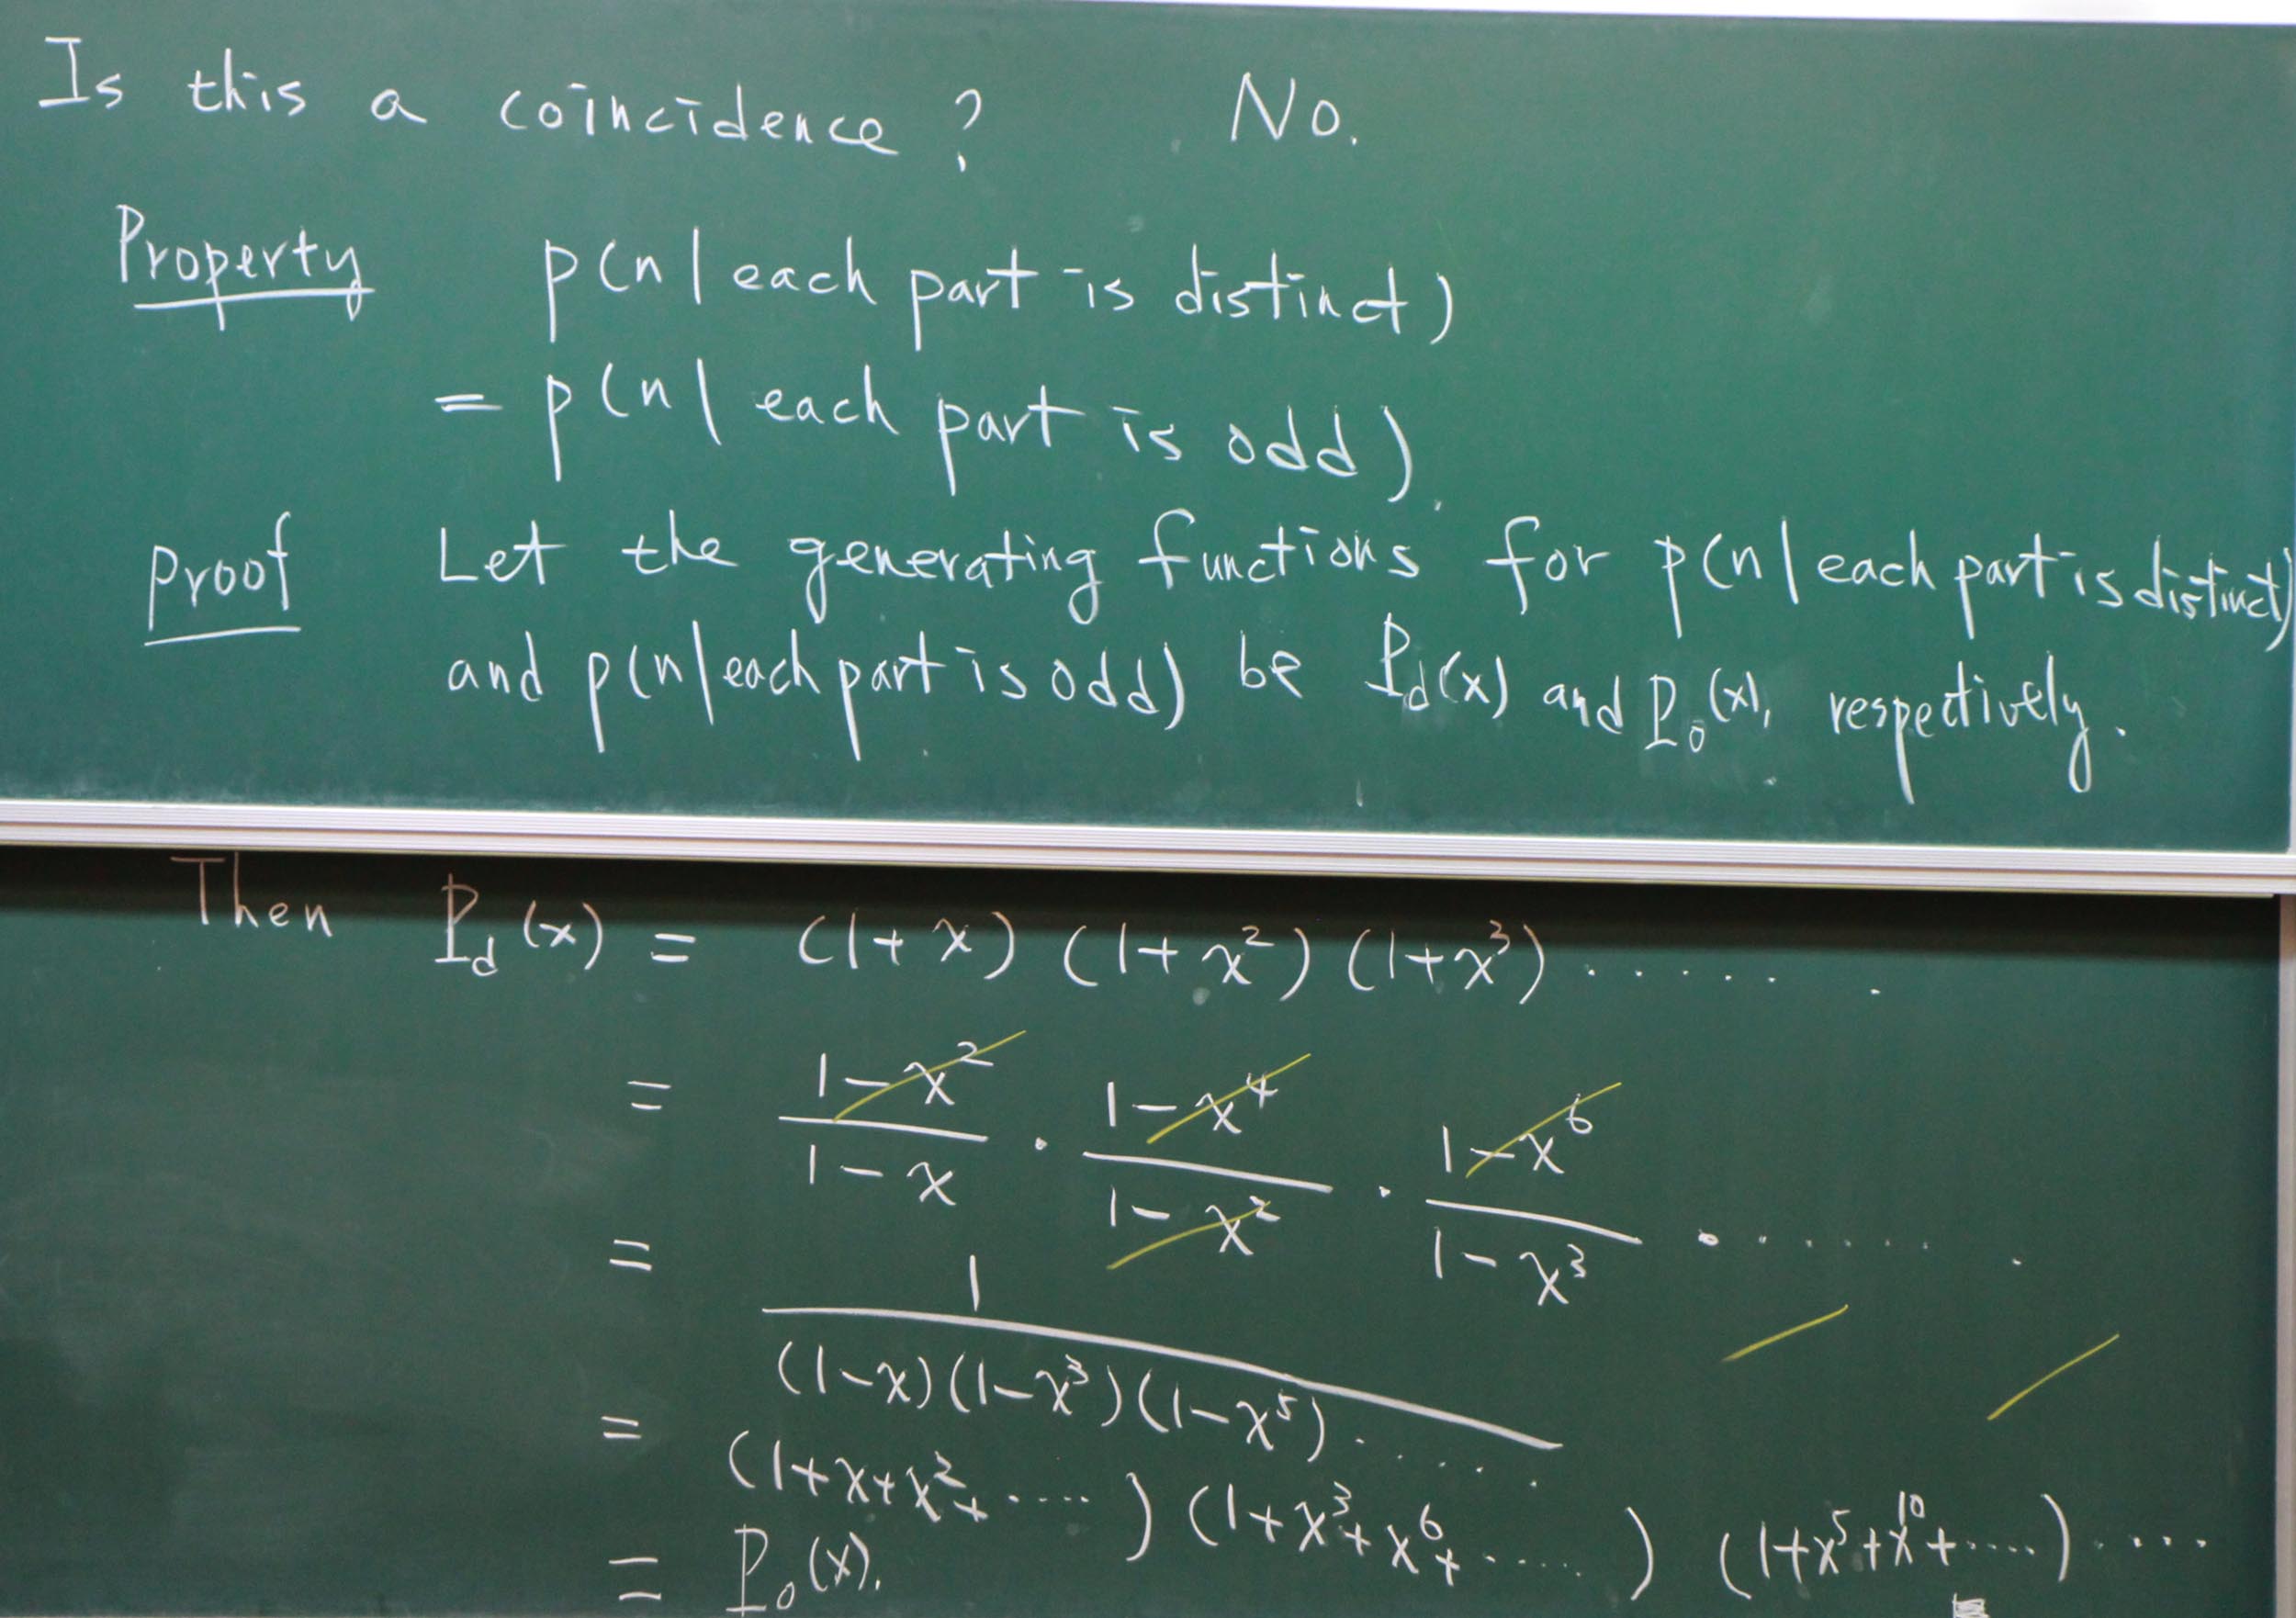 Is this a coincidence? No.
Property p(n | each part is distinct)
= p(n | each part is odd).
Proof Let the generating functions for p(n | each part is distinct)
and p(n | each part is odd) be P_d(x) and P_o(x), respectively.
Then P_d(x) = (1+x)(1+x^2)(1+x^3)......
= \frac{1-x^2}{1-x} · \frac{1-x^4}{1-x^2} · \frac{1-x^6}{1-x^3} · ......
= \frac{1}{(1-x)(1-x^3)(1-x^5)......}
= (1+x+x^2+....)(1+x^3+x^6+....)(1+x^5+x^{10}+....)....
= P_o(x).